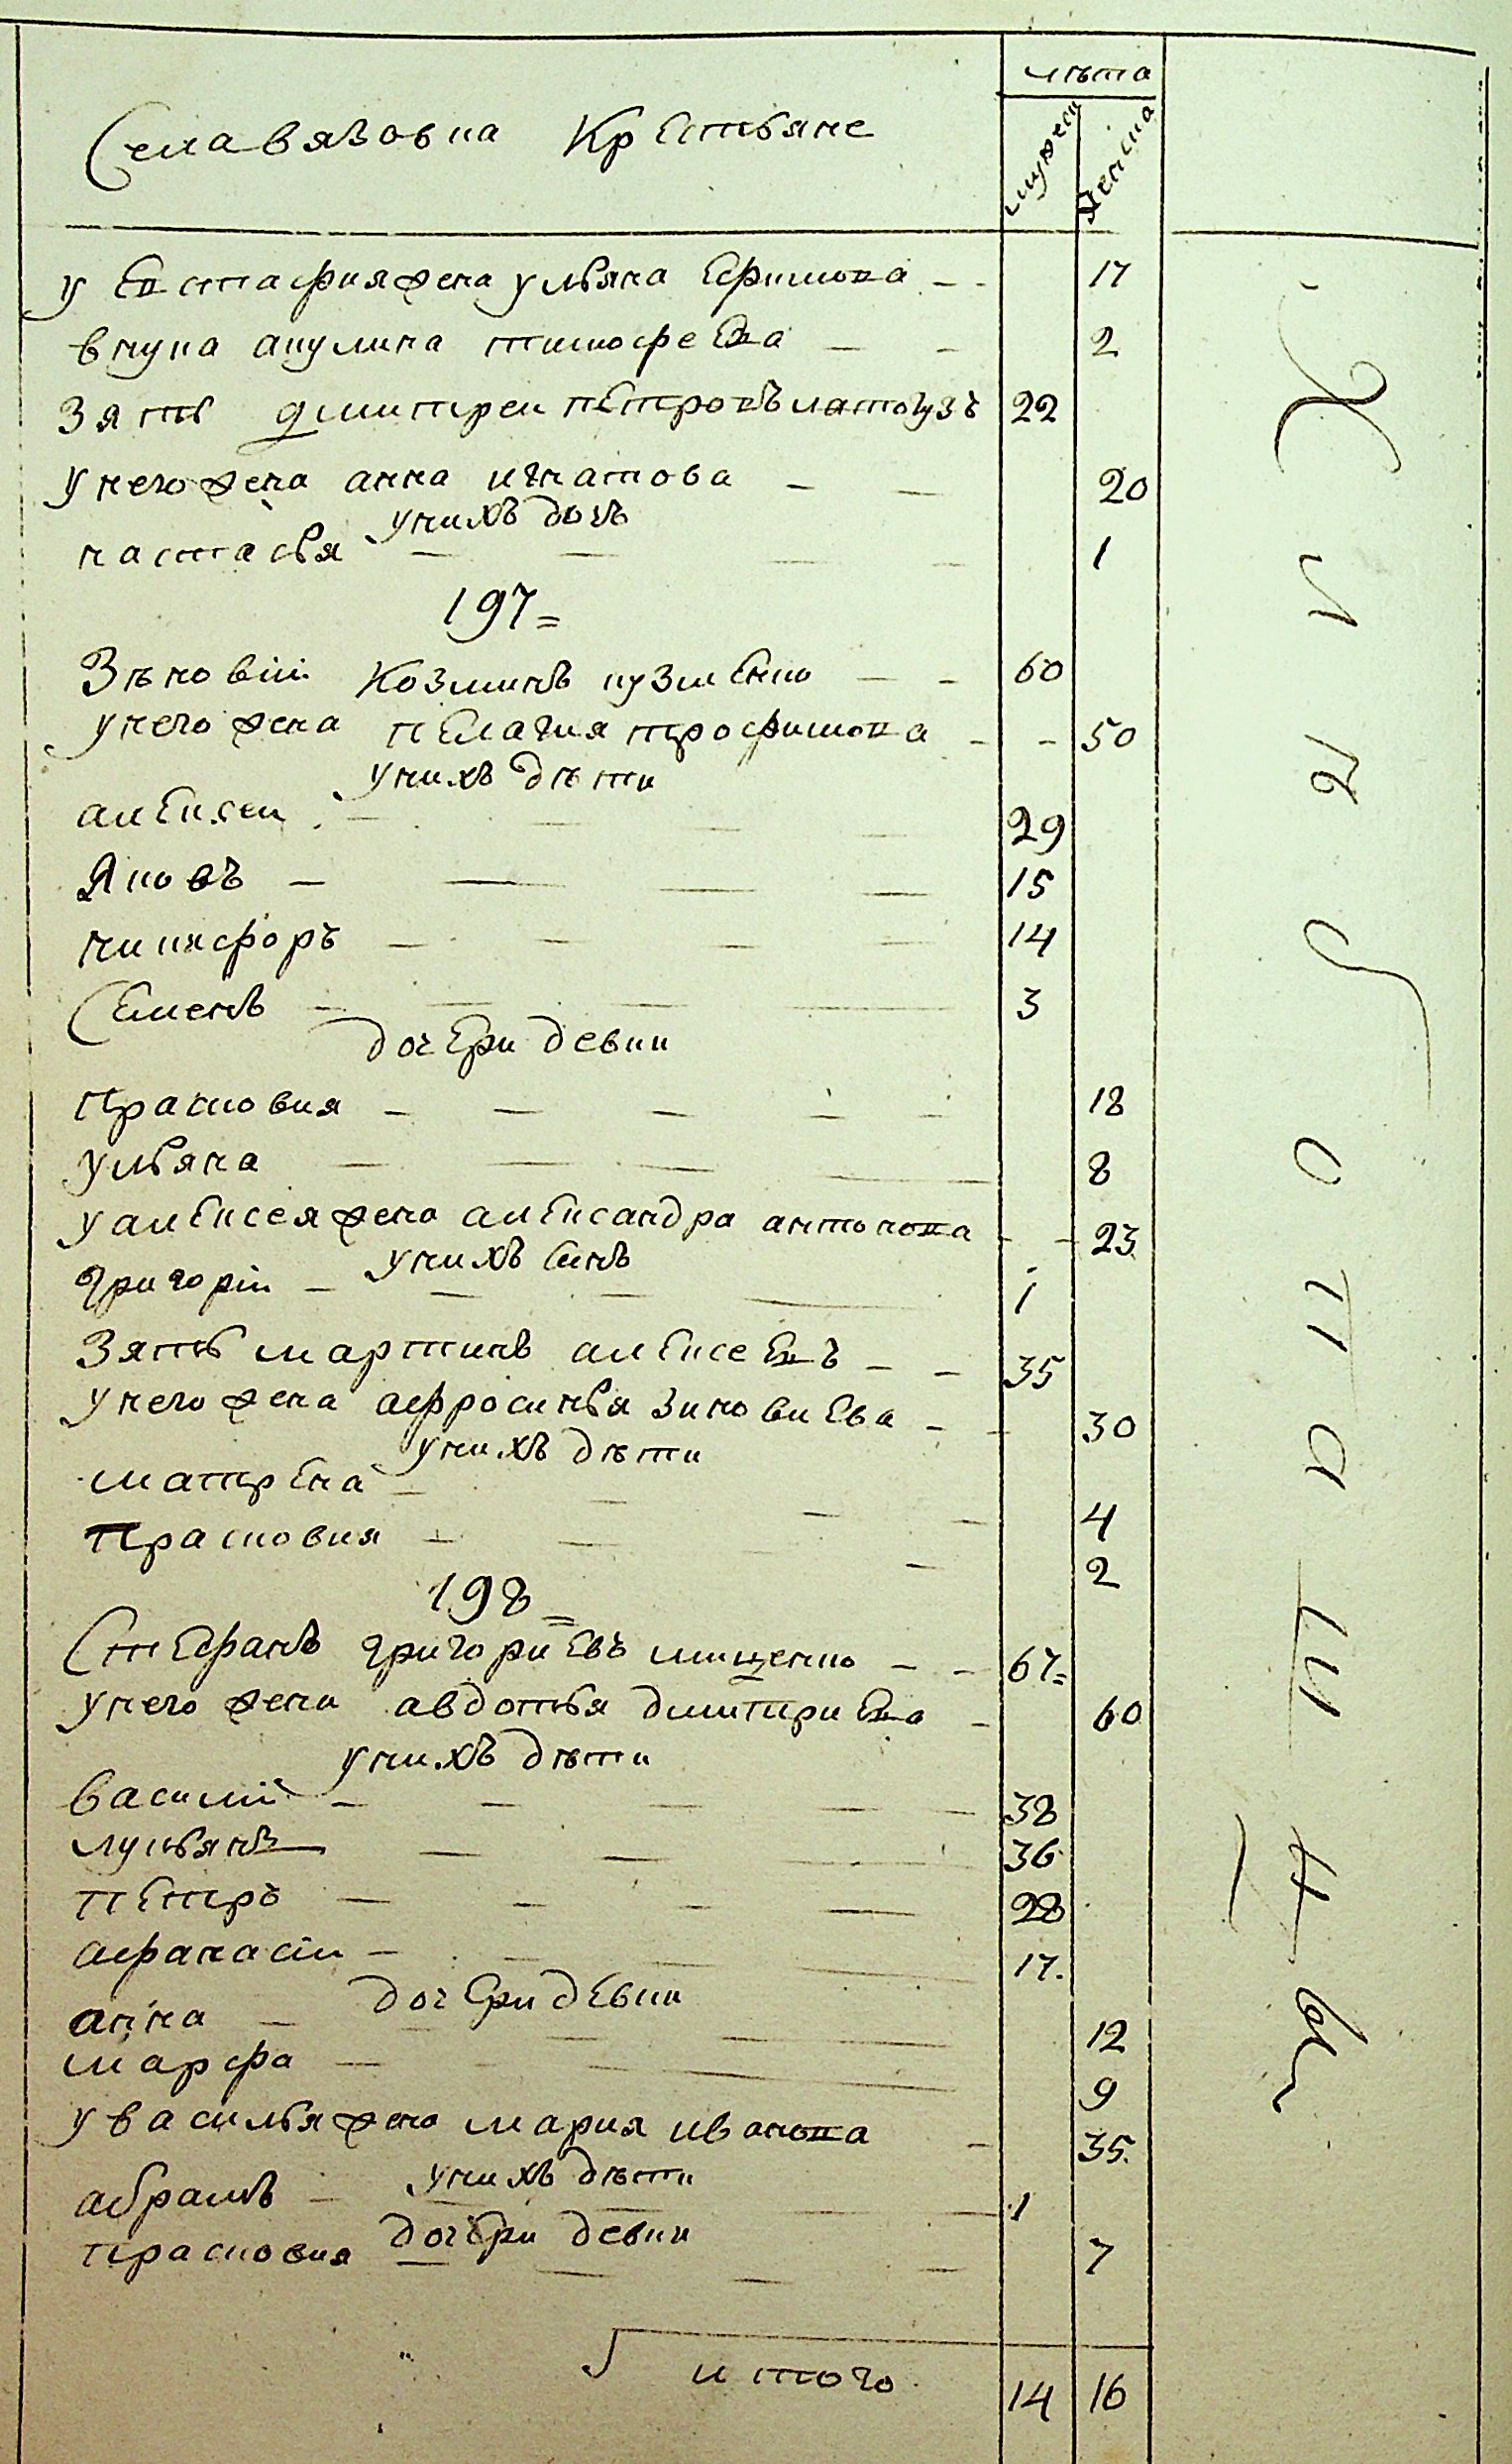 лѣта
Села вязовка Крестьяне мужеск женска
у Евстафия жена ульяна Ефимова - - 17
внука акулина тимофеева - - 2
Зять дмитреи петровъ 22
у него жена анна игнатова - - 20
у нихъ дочь
настасья - - - - 1
197=
Зѣновiи Козминъ кузменко - - 60
у него жена пелагия трофимова - - 50
у нихъ дѣти
алексеи - - - - 29
Яковъ - - - - 15
никифоръ - - - - 14
Семенъ - - - - 3
дочери девки
прасковия - - - - - 18
ульяна - - - - 8
у алексея жена александра антонова - - 23
у нихъ синъ
григорiи - - - - 1
Зять мартинъ алексеевъ - - 35
у него жена афросинья зиновиева - - 30
у нихъ дѣти
матрена - - - - 4
прасковия - - - 2
198=
Стефанъ григориевъ мищенко - - 67=
у него жена авдотья дмитриева - 60
у нихъ дѣти
василiи - - - - - 38
лукьянъ - - - - 36
петръ - - - - 28
афанасiи - - - - 17.
дочери девки
анна - - - - 12
марфа - - - 9
у василья жена мария иванова - 35.
у нихъ дѣти
абрамъ - - - - 1
дочери девки
прасковия - - - - 7
итого 14 16